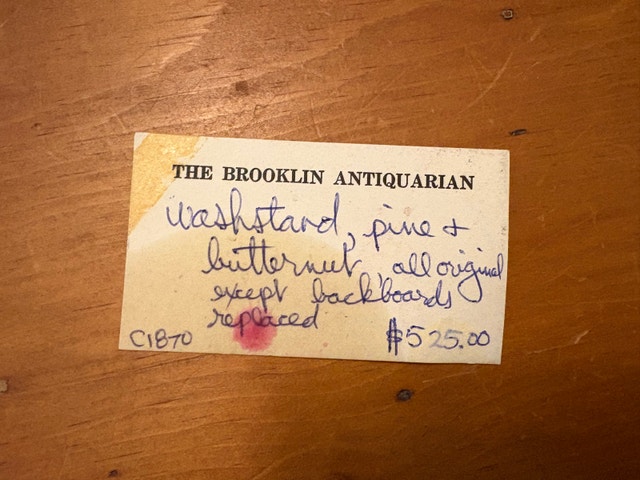 THE BROOKLIN ANTIQUARIAN
washstand, pine +
butternut, all original
except backboards
replaced
C1870 $525.00